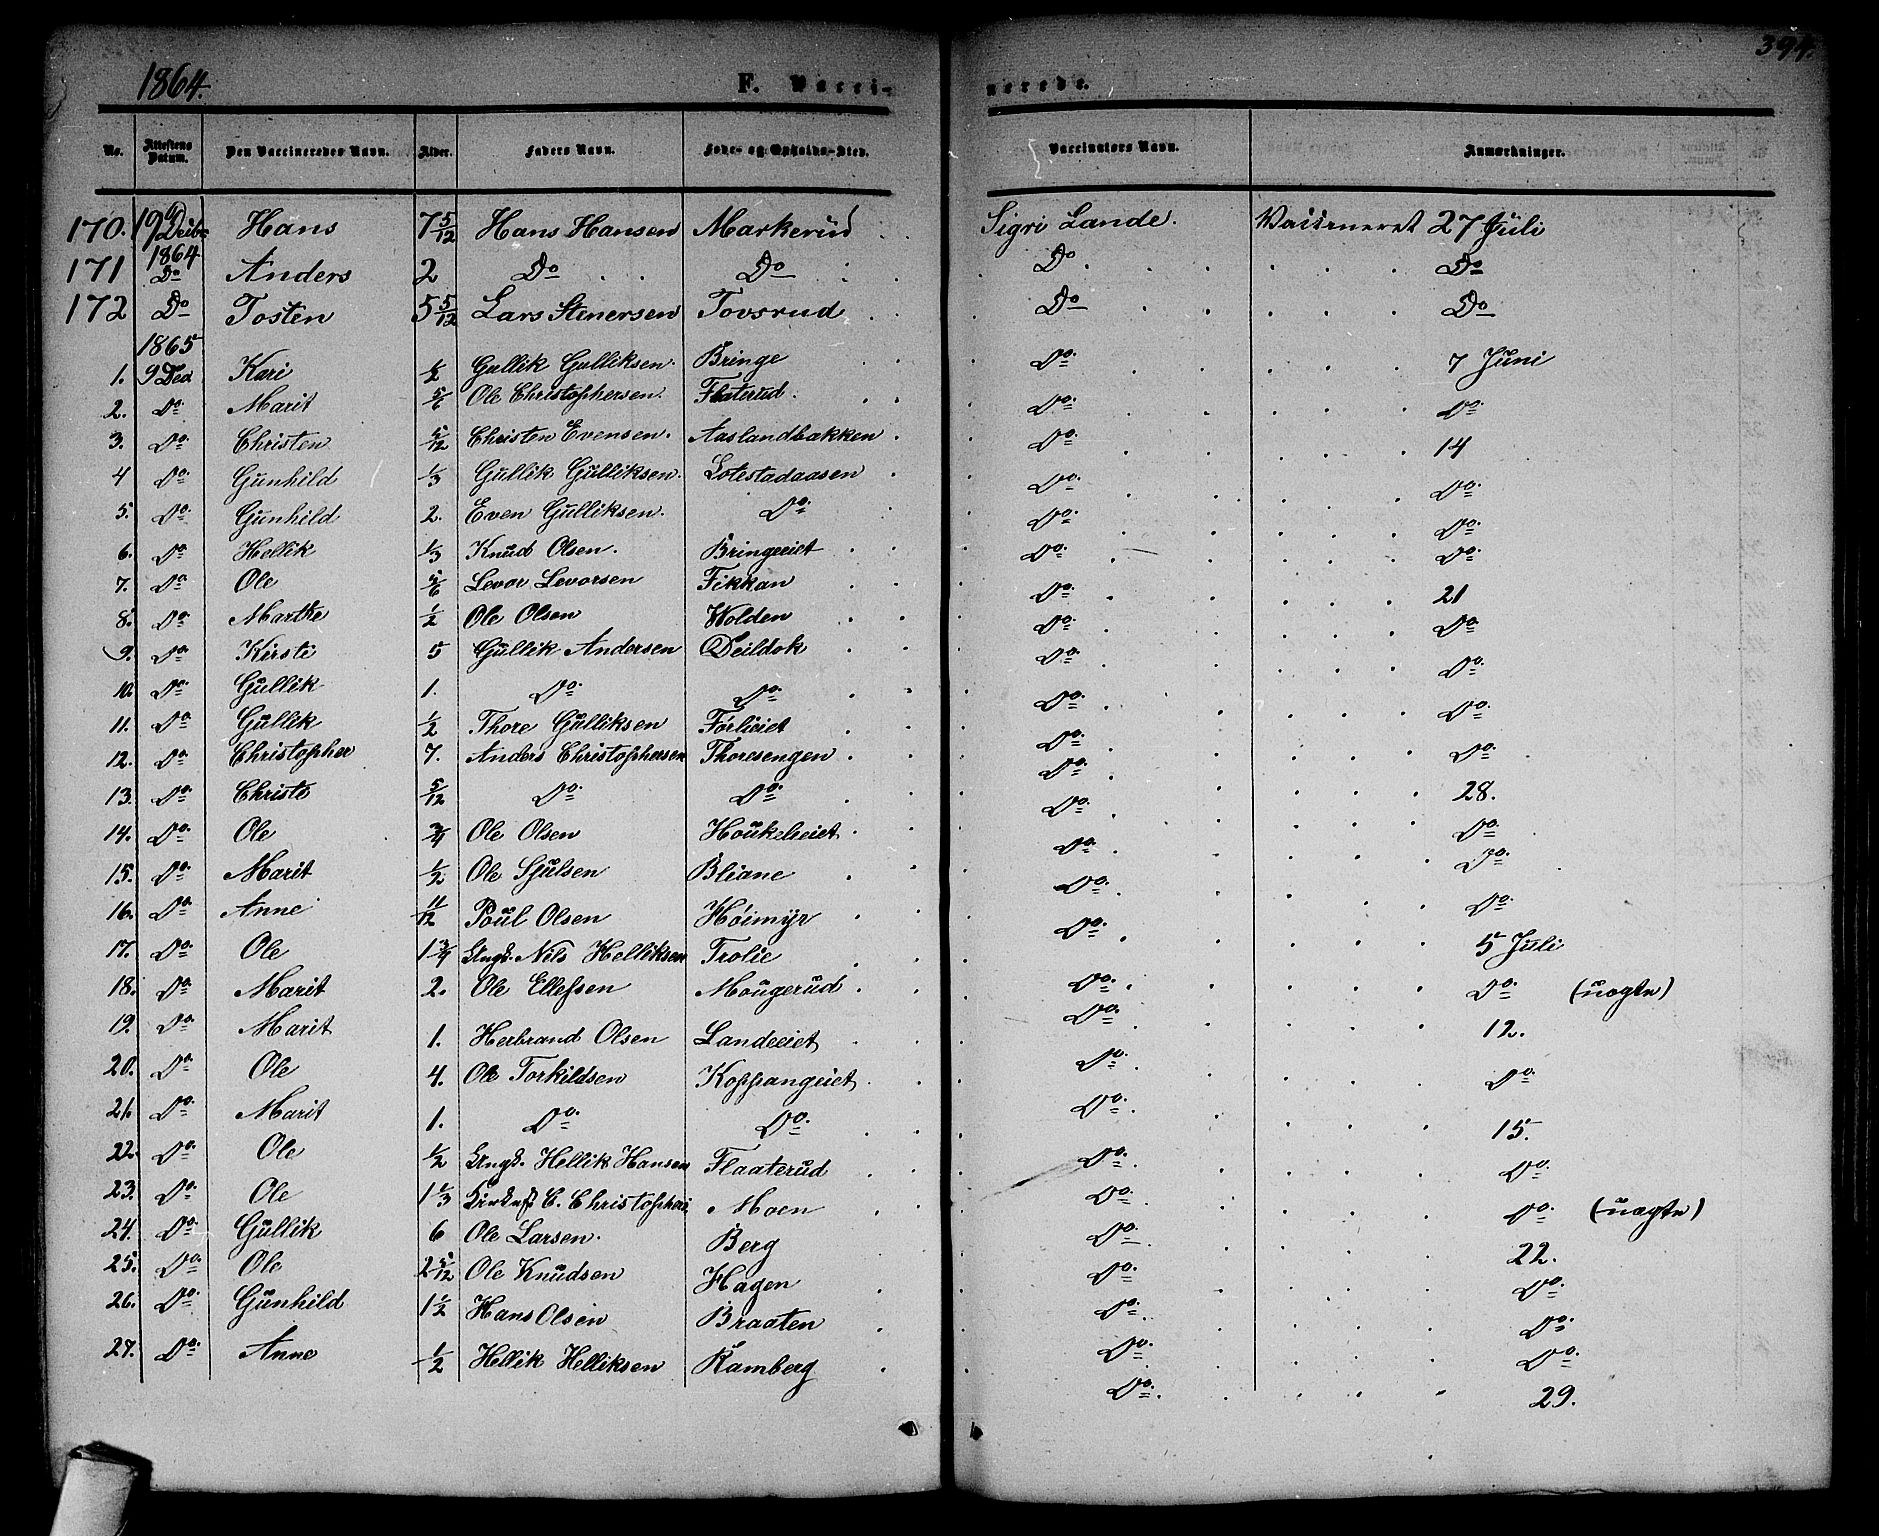 394.
1864. F. Vacci- nerede.
No. Attestens Datum. Den Vaccineredes Navn. Alder. Faders Navn. Føde- og Opholds-Sted. Vaccinators Navn. Anmærkninger.
170. 19 Decbr 1864 Hans 7 5/12 Hans Hansen Markerud Sigri Lande. 27 Juli
171 Do Anders 2 Do Do Do Do
172 Do Tosten 5 5/12 Lars Stenersen Tovsrud Do Do
1865
1. 9 Dec Kari 1/2 Gullik Gulliksen. Bringe Do 7 Juni
2. Do Marit 5/6 Ole Christophersen. Flaterud. Do Do
3. Do Christen 5/12 Christen Evensen. Aaslandbakken Do 14
4 Do Gunhild 1/3 Gullik Gulliksen. Lotestadaasen Do Do
5. Do Gunhild 2. Even Gulliksen. Do Do Do
6. Do Hellik 1/3 Knud Olsen. Bringeeiet Do Do
7. Do Ole 5/6 Levor Levorsen Fikkan Do 21
8. Do Marthe 1/2 Ole Olsen Wolden Do Do
9. Do Kirsti 5 Gullik Andersen Deildok Do Do
10. Do Gullik 1. Do Do Do Do
11. Do Gullik 1/2 Thore Gulliksen Førlieiet Do Do
12. Do Christopher 7. Anders Christophersen Thoresengen Do 28.
13. Do Christi 5/12 Do Do Do Do
14. Do Ole 3/4 Ole Olsen Houkelieiet Do Do
15. Do Marit 1/2 Ole Sjulsen Bliane Do Do
16. Do Anne 11/12 Poul Olsen Høimyr Do 5 Juli
17. Do Ole 1 3/4 Ungk. Nils Helliksen Trolie Do Do (uægte)
18. Do Marit 2. Ole Ellefsen Mougerud Do 12.
19. Do Marit 1. Herbrand Olsen Landeeiet Do Do
20. Do Ole 4. Ole Torkildsen Koppangeiet Do 15.
21. Do Marit 1. Do Do Do Do
22. Do Ole 1/2 Ungk. Hellik Hansen Flaaterud Do Do (uægte)
23. Do Ole 1 1/3 C. Christophers Moen Do 22.
24. Do Gullik 6 Ole Larsen. Berg Do Do
25. Do Ole 2 5/12 Ole Knudsen Hagen Do Do
26. Do Gunhild 1 1/2 Hans Olsen Braaten Do Do
27. Do Anne 1/2 Hellik Helliksen Ramberg Do 29.